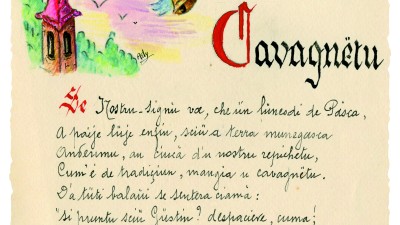 Cavagnëtu
Se Nostru-Signù voe, che ün lünesdì de Pasca,
A paije lüje enfin, sciü a terra munegasca
Anderimu, au ciucà d'u nostru repichëtu,
Cum'è de tradiçiun, mangia u cavagnëtu.
Da tüti balaui se sentera ciamà:
"Si pruntu sciü Güstin? despaciève, cuma!